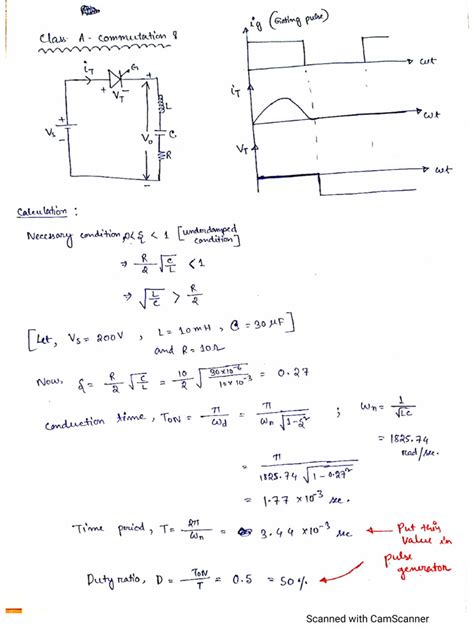 Class A - Commutation :
ig (Gating pulse)
ωt
iT
ωt
VT
ωt
iT
G
+ VT -
+
L
Vs
Vo
C
R
-
Calculation :
Necessary condition, 0< ξ < 1 [underdamped condition]
⇒ R/2 √(C/L) < 1
⇒ √(L/C) > R/2
[Let, Vs = 200V , L = 10mH , C = 30 μF]
and R = 10Ω
Now, ξ = R/2 √(C/L) = 10/2 √(30×10⁻⁶/10×10⁻³) = 0.27
conduction time, TON = π/ωd = π/(ωn √(1-ξ²)) ; ωn = 1/√LC
= 1825.74 rad/sec.
= π/(1825.74 √(1-0.27²))
= 1.77 × 10⁻³ sec.
Time period, T = 2π/ωn = 3.44 ×10⁻³ sec ← Put this value in pulse generator
Duty ratio, D = TON/T = 0.5 = 50% ←
Scanned with CamScanner